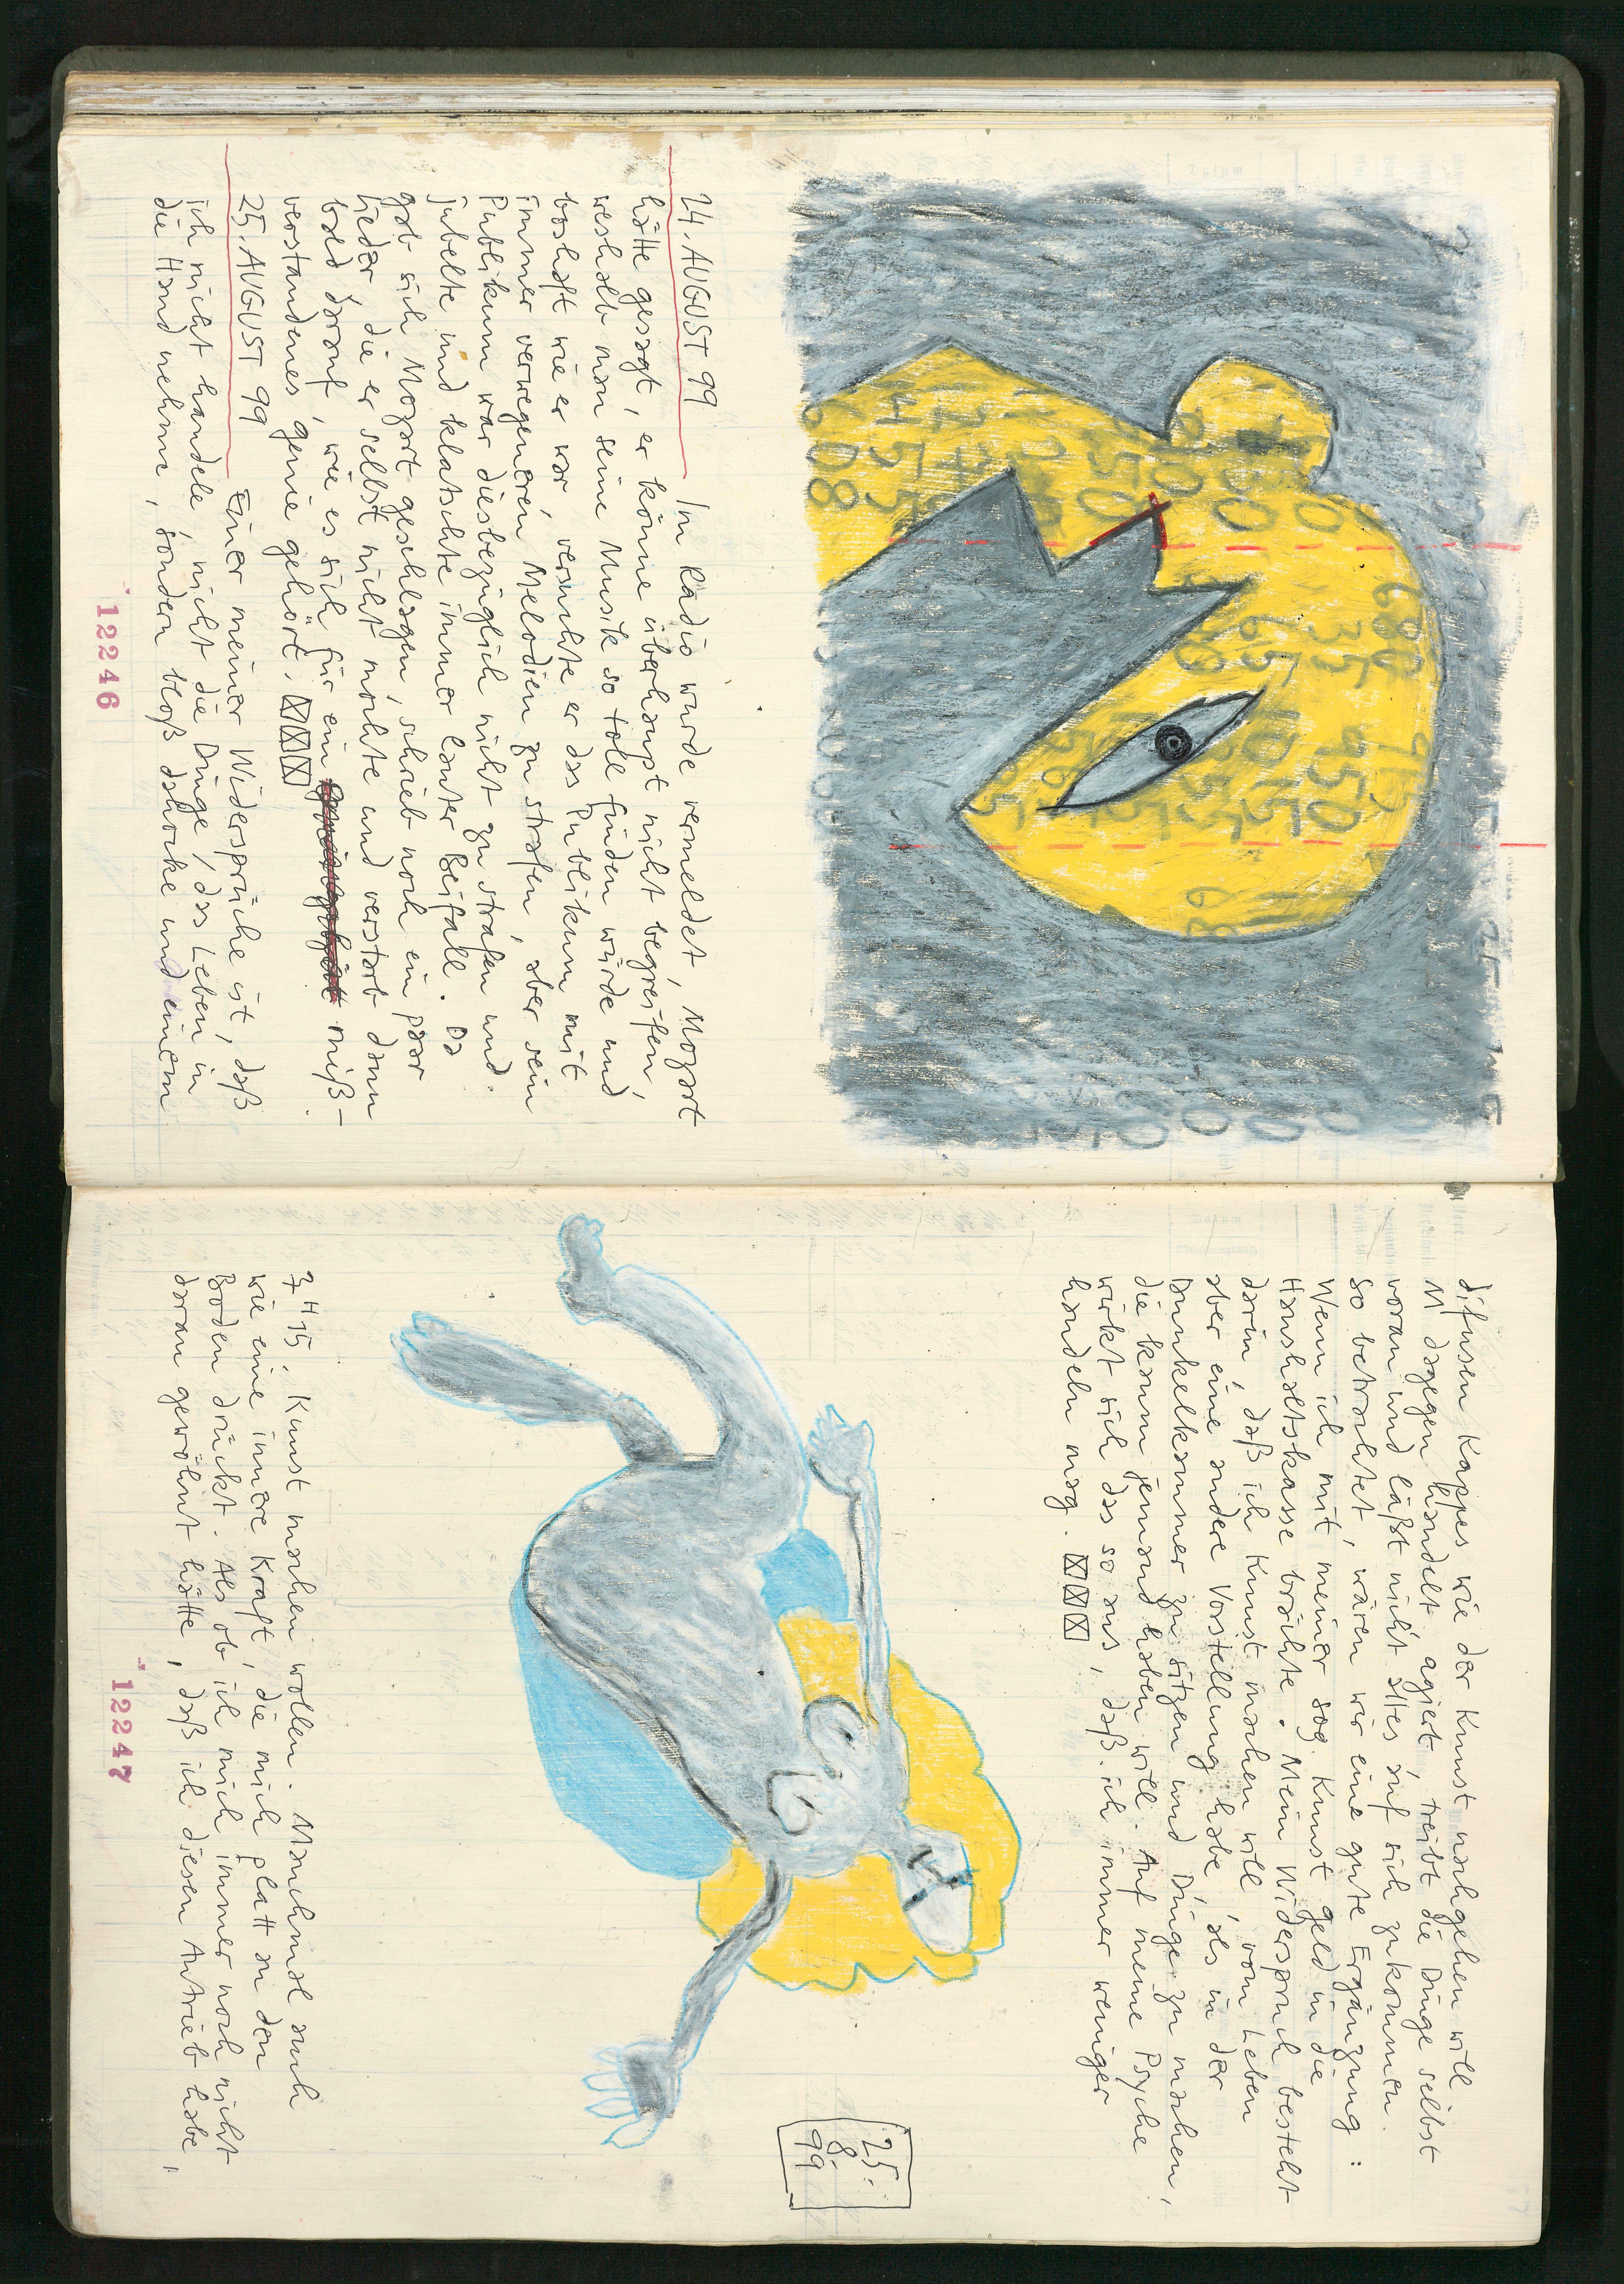 24. AUGUST 99 In Radio wurde vermeldet, Mozart
hätte gesagt, er könne überhaupt nicht begreifen,
weshalb man seine Musik so toll finden würde und
boshaft wie er war, versuchte er das Publikum mit
immer verwegeneren Melodien zu strafen, aber sein
Publikum war diesbezüglich nicht zu strafen und
jubelte und klatschte immer lauter Beifall. Da
gab sich Mozart geschlagen, schrieb noch ein paar
Lieder, die er selbst nicht mochte und verstarb dann
bald darauf, wie es sich für ein miß-
verstandenes genie gehört.
25. AUGUST 99 Einer meiner Widersprüche ist, daß
ich nicht handele, nicht die Dinge, das Leben in
die Hand nehme, sondern bloß dahocke und einem
12246
difusen Kappes wie der Kunst nachgehen will.
M dagegen handelt, agiert, treibt die Dinge selbst
voran und läßt nicht alles auf sich zukommen.
So betrachtet, wären wir eine gute Ergänzung:
Wenn ich mit meiner sog. Kunst geld in die
Haushaltskasse brächte. Mein Widerspruch besteht
darin, daß ich Kunst machen will, vom Leben
aber eine andere Vorstellung habe, als in der
Dunkelkammer zu sitzen und Dinge zu machen,
die kaum jemand haben will. Auf meine Psyche
wirkt sich das so aus, daß ich immer weniger
handeln mag.
25.
8.
99
7H15, Kunst machen wollen. Manchmal auch
wie eine innere Kraft, die mich platt an den
Boden drückt. Als ob ich mich immer noch nicht
daran gewöhnt hätte, daß ich diesen Antrieb habe,
12247